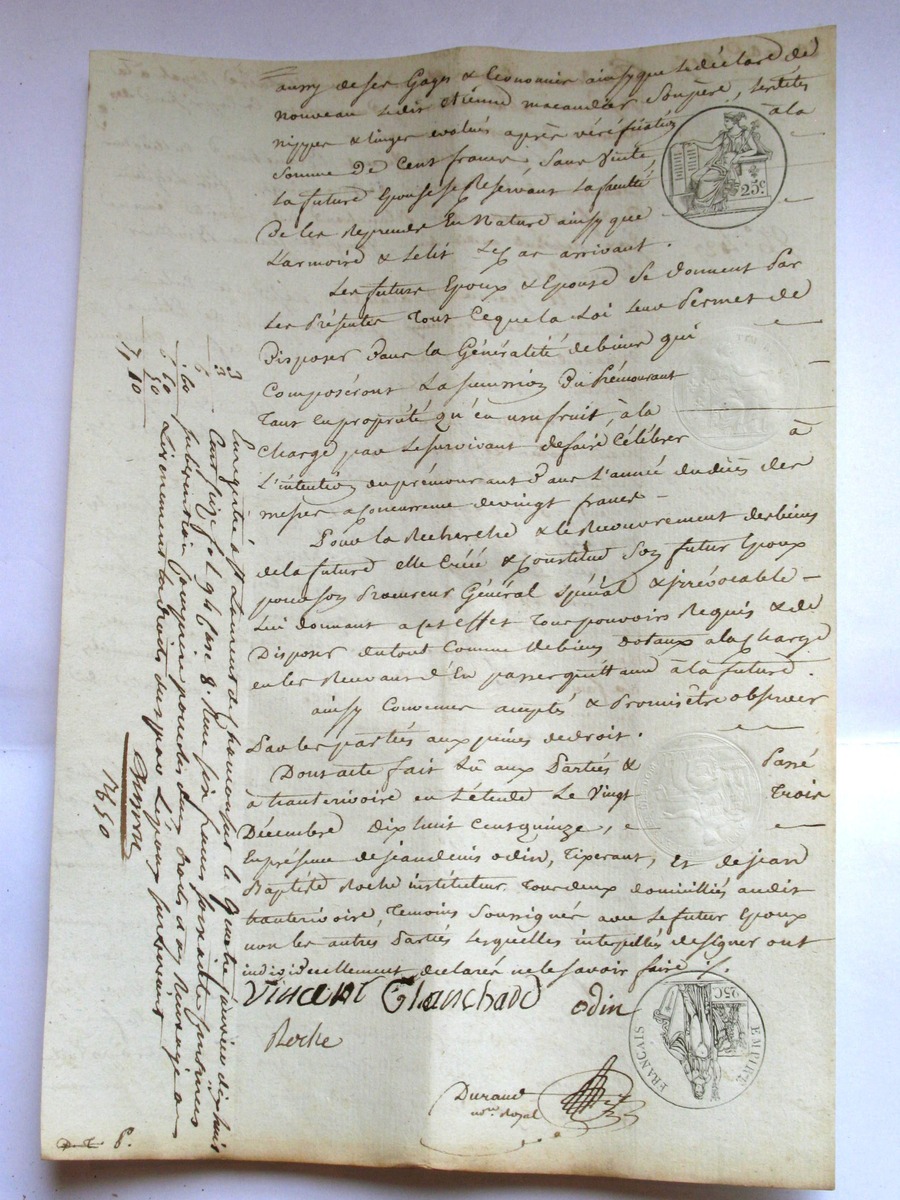 aussy de ses Gages & Economie ainsy que le déclare de
nouveau ledit Etienne macaudier Son père, lesdites
nippes & linges evalués après vérification à la
Somme De Cent francs Sans Vente,
La future Epouse se Réservant La faculté
De les Reprendre En Nature ainsy que
L'armoire & Le lit Le Cas arrivant.
Les futurs Epoux & Epouse Se donnent Par
Les Présentes Tout Ceque la Loi leur Permet de
Disposer Dans la Généralité de biens qui
Composeront La succession Du Prémourant
Tant en propriété qu'en usufruit, à la
Charge par Le survivant de faire Célébrer à
L'intention du prémourant Dans L'année du décès des
messes a Concurrence de vingt francs —
Pour la Recherche & le Recouvrement des biens
de la future elle Créé & Constitue Son futur Epoux
pour son Procureur Général spécial & irrévocable —
Lui donnant a cet effet Tous pouvoirs Requis & de
Disposer du tout Comme de biens dotaux a la Charge
en les Recevant d'En passer quittance à la future.
ainsy Convenu accepté & Promis être observer
Par les parties aux peines de droit.
Dont acte fait Lu aux Parties & Passé
à hauterivoire en L'étude Le Vingt Trois
Décembre dix huit Cent quinze,
En présence de jean denis odin, Tixerant, Et de jean
Baptiste Roche instituteur Tous deux domiciliés audit
hauterivoire, Temoins Soussignés avec Le futur Epoux
non les autres Parties Lesquelles interpellés de signer ont
individuellement déclarés ne le savoir faire
Vincent Blanchard odin
Roche
Duraud
no.re Royal
25C.
EMPIRE FRANÇAIS
25C
Enregistré à St Laurent de Chamousset le quatre janvier dix huit
Cent seize fol. 96 Case 8. Reçu six francs soixante centimes
Subvention Comprise pour dix deux droits